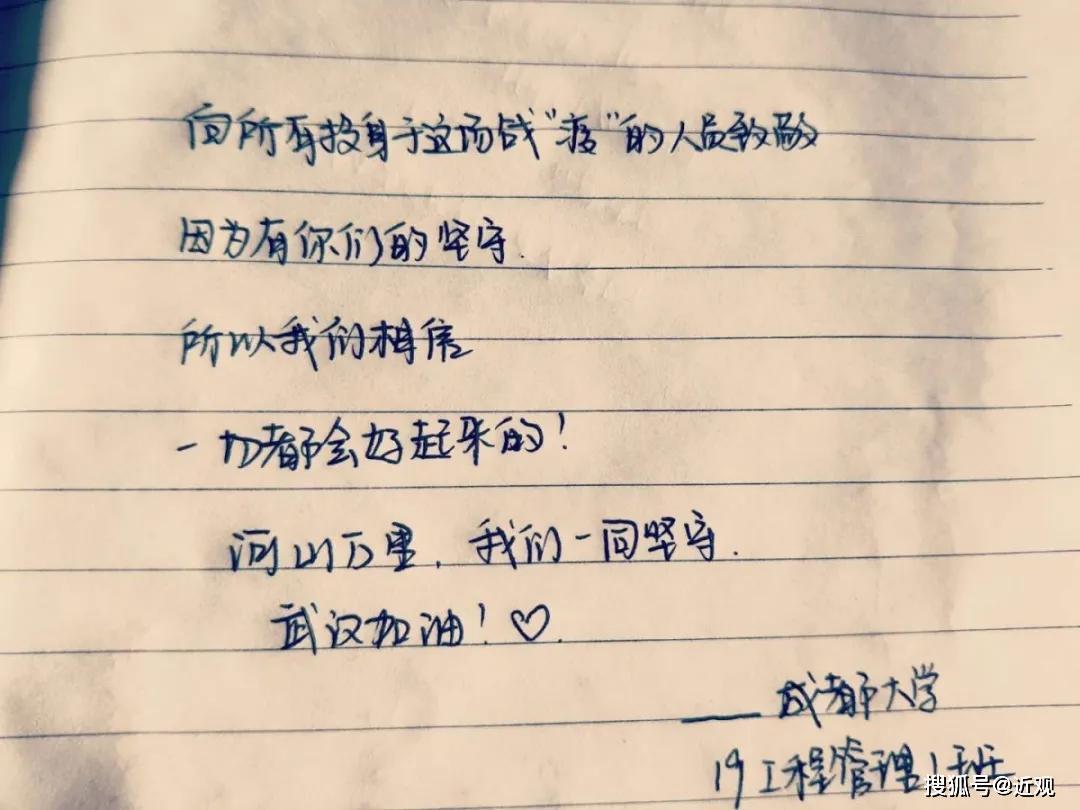 向所有投身于这场战“疫”的人员致敬
因为有你们的坚守.
所以我们相信
一切都会好起来的!
河山万里,我们一同坚守.
武汉加油!♡.
——成都大学
19工程管理1班
搜狐号@近观